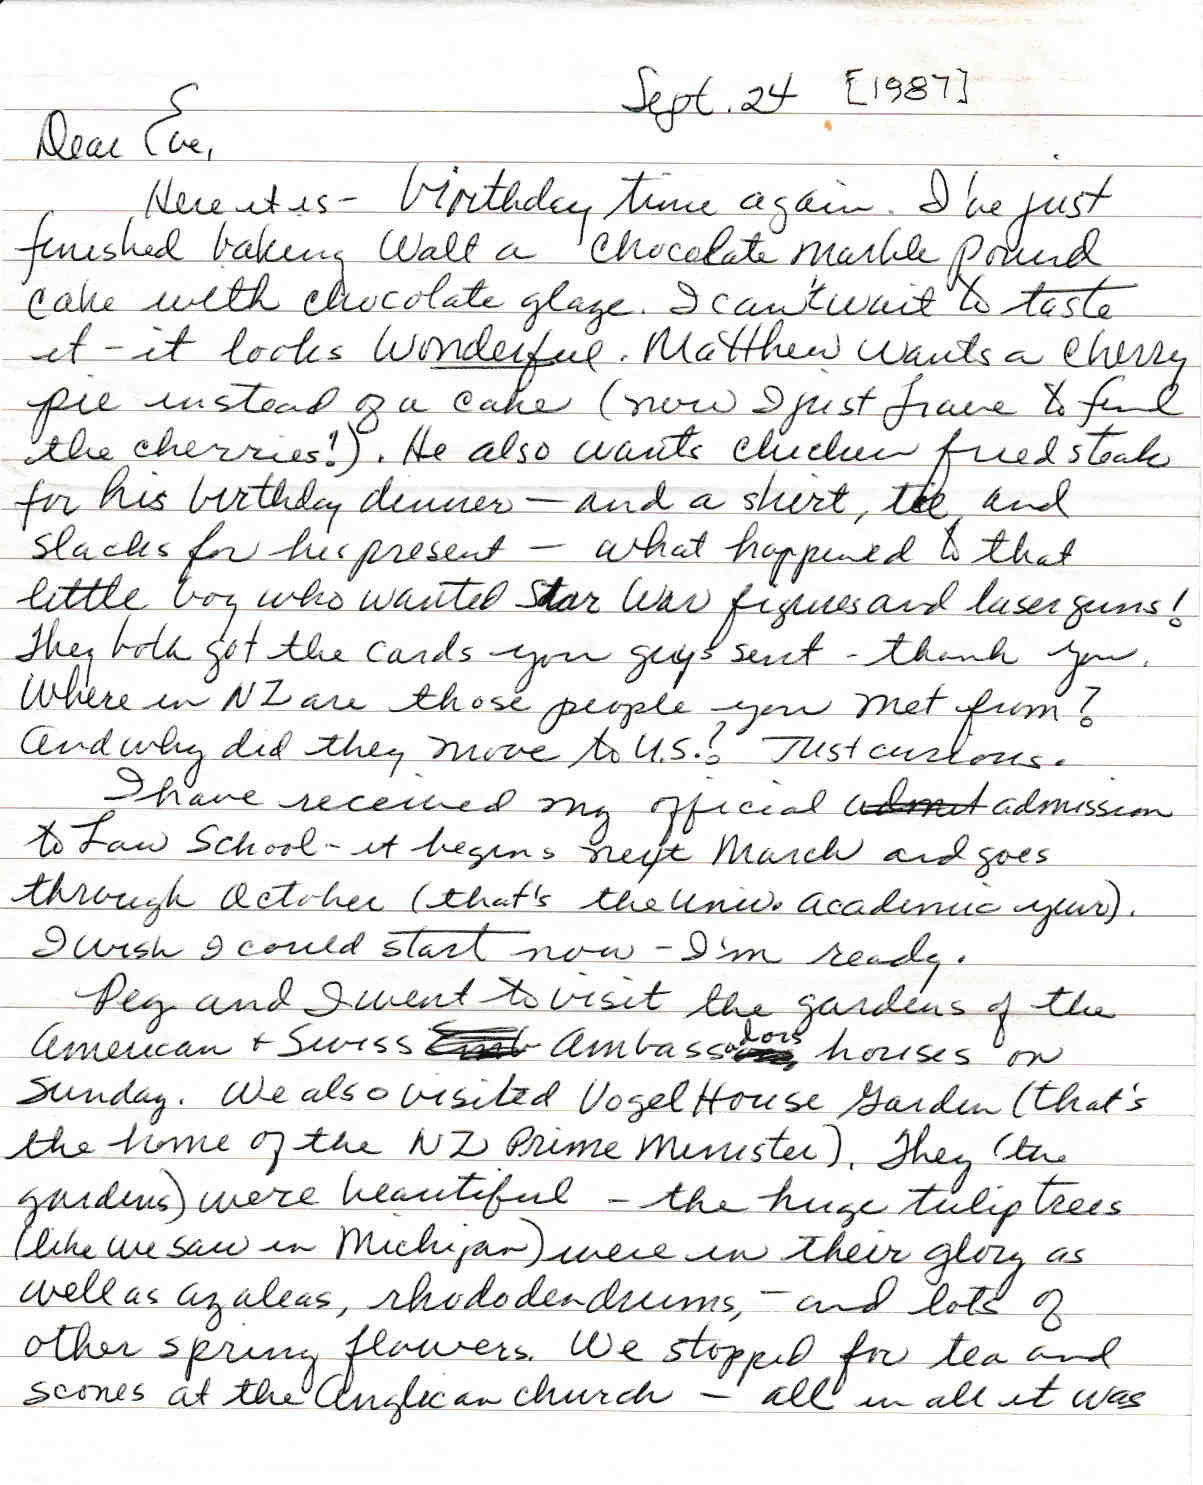 Sept. 24 [1987]
Dear Eve,
Here it is - birthday time again. I've just
finished baking Walt a chocolate marble pound
cake with chocolate glaze. I can't wait to taste
it - it looks wonderful. Matthew wants a cherry
pie instead of a cake (now I just have to find
the cherries!). He also wants chicken fried steak
for his birthday dinner - and a shirt, tie, and
slacks for his present - what happened to that
little boy who wanted Star War figures and laser guns!
They both got the cards you guys sent - thank you.
Where in NZ are those people you met from?
And why did they move to U.S.? Just curious.
I have received my official admit admission
to Law School - it begins next March and goes
through October (that's the Univ. academic year).
I wish I could start now - I'm ready.
Peg and I went to visit the gardens of the
American + Swiss Emb Ambassadors houses on
Sunday. We also visited Vogel House Garden (that's
the home of the NZ Prime Minister). They (the
gardens) were beautiful - the huge tulip trees
(like we saw in Michigan) were in their glory as
well as azaleas, rhododendrums, - and lots of
other spring flowers. We stopped for tea and
scones at the Anglican church - all in all it was